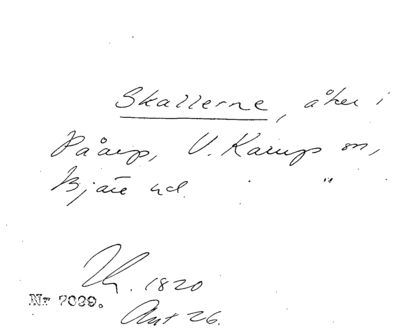 Skallerne, åker i
Påarp, V. Karups sn,
Bjäre hd. "
Kh. 1820
Nr 7039.
Ant 26.